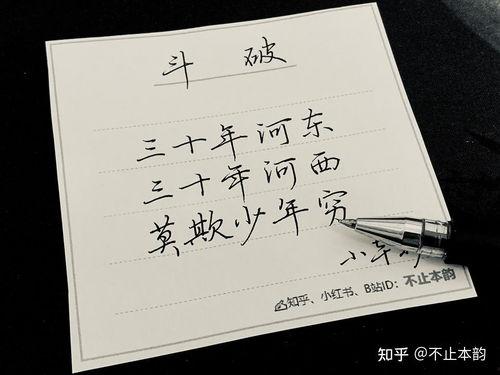 斗 破
三十年河东
三十年河西
莫欺少年穷
知乎、小红书、B站ID：不止本韵
知乎 @不止本韵